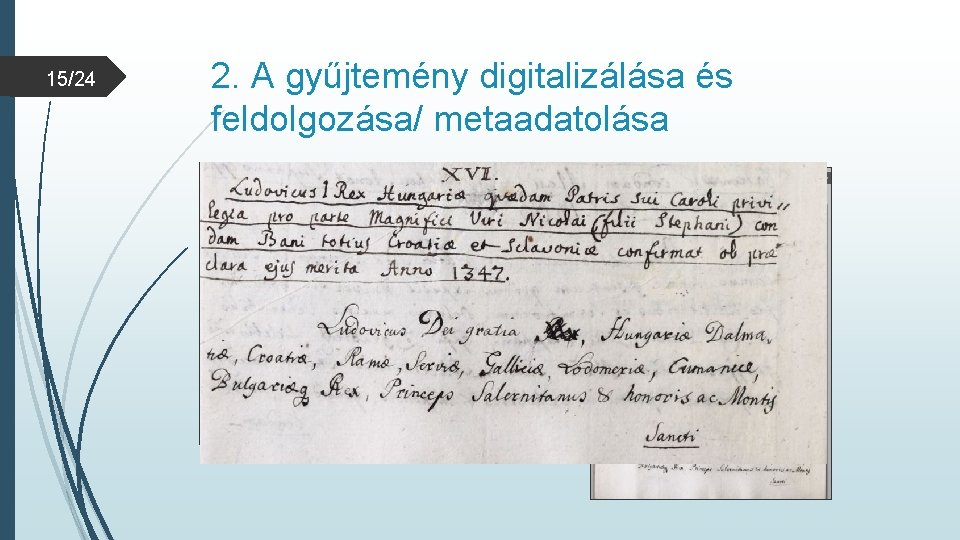 15/24
2. A gyűjtemény digitalizálása és
feldolgozása/ metaadatolása
XVI.
Ludovicus I Rex Hungariæ quædam Patris sui Caroli privi„
legia pro parte Magnifici Viri Nicolai (filii Stephani) con
dam Bani totius Croatiæ et Sclavoniæ confirmat ob præ
clara ejus merita Anno 1347.
Ludovicus Dei gratia Rex, Hungariæ Dalma
tiæ, Croatiæ, Ramæ, Serviæ, Galliciæ, Lodomeriæ, Cumaniæ,
Bulgariæq Rex, Princeps Salernitanus & honoris ac Montis
Sancti
Rex Princeps Salernitanus & honoris ac Montis
Sancti